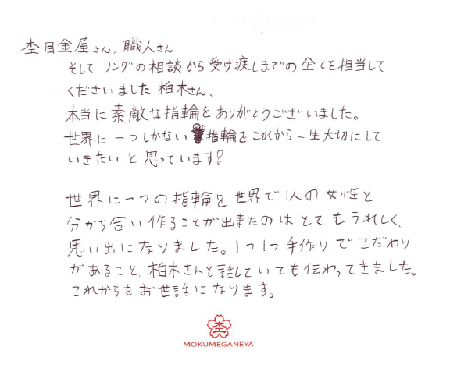 杢目金屋さん、職人さん
そして リングの相談から受け渡しまでの全てを担当して
くださいました 柏木さん、
本当に素敵な指輪をありがとうございました。
世界に一つしかない 指輪をこれから一生大切にして
いきたいと思っています!
世界に一つの指輪を世界で1人の女性と
分かち合い作ることが出来たのはとてもうれしく、
思い出になりました。1つ1つ手作りでこだわり
があること、柏木さんと話していても伝わってきました。
これからもお世話になります。
MOKUMEGANEYA